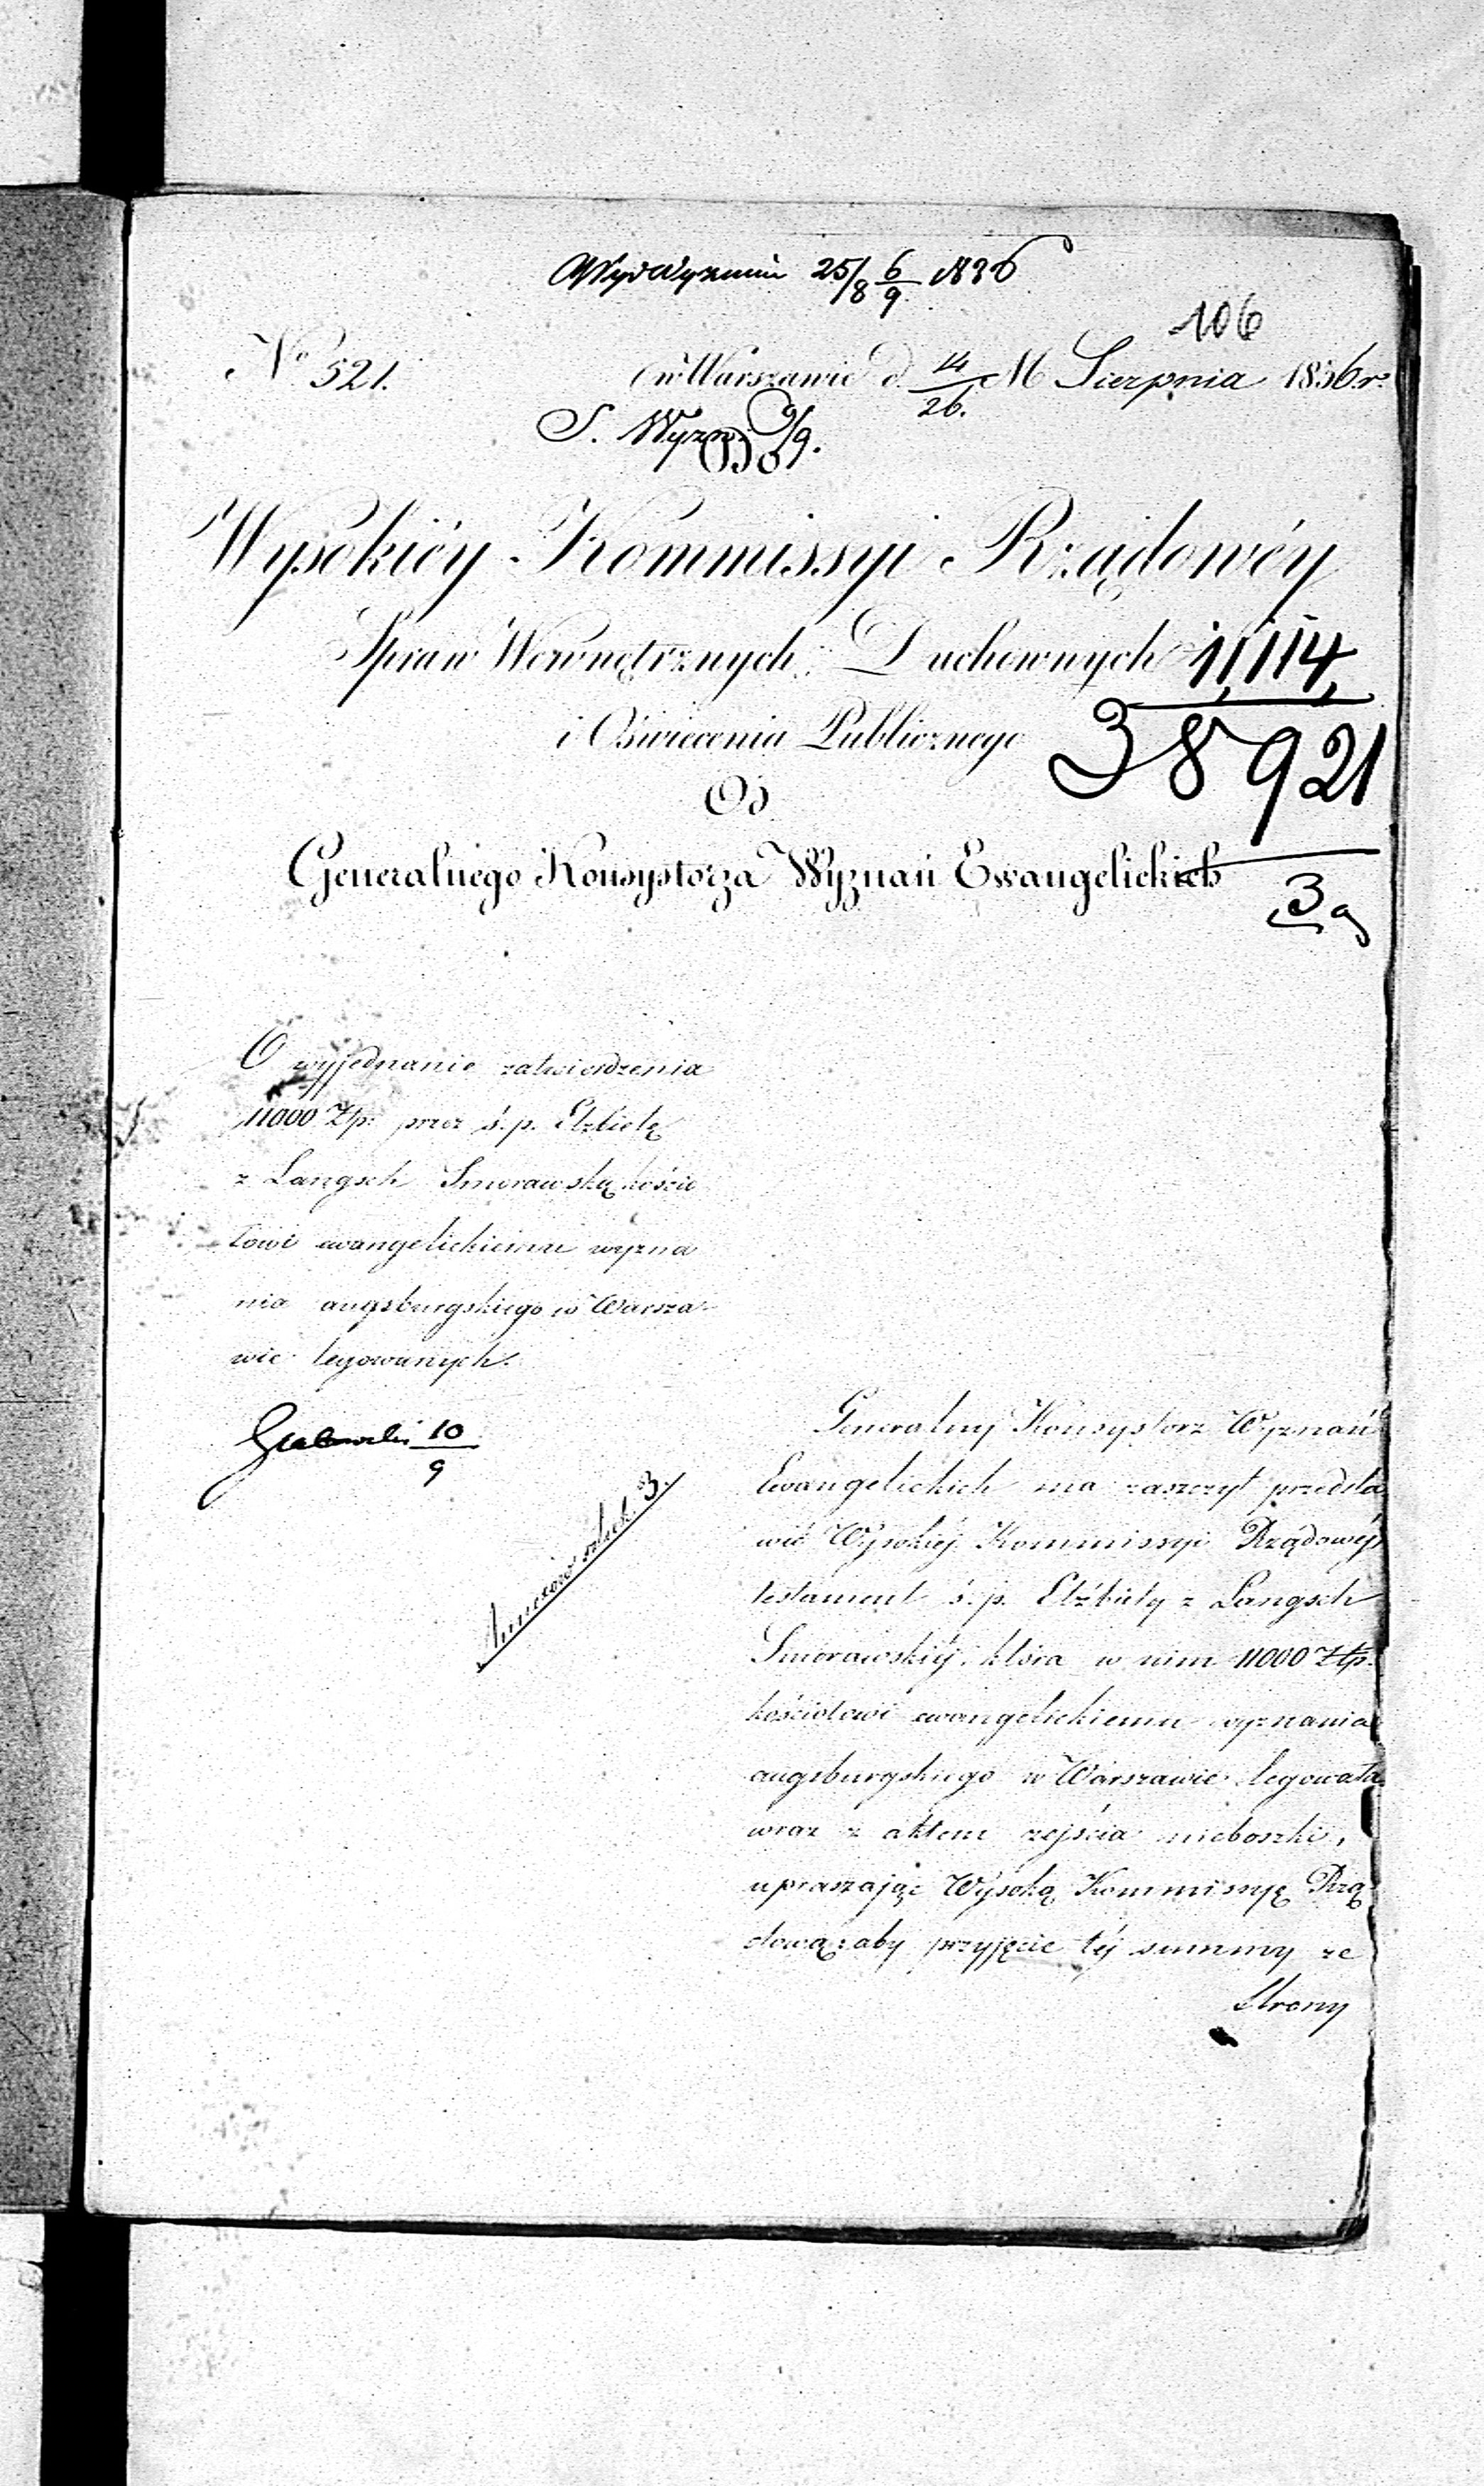 25/8 6/9 1836
106
No 521.
w Warszawie d. 14/26. M Sierpnia 1836 r.
S. Wyzn. 9/9.
Do
Wysokiéy Kommissyi Rządowéy
Spraw Wewnętrznych, Duchownych
11,114,
i Oświecenia Publicznego
38921
Od
Generalnego Konsystorza Wyznań Ewangelickich
3/9
O wyjednanie zatwierdzenia
11000 Złp. przez ś. p. Elżbietę
z Langsch Smorawską kościo
łowi ewangelickiemu wyzna
nia augsburgskiego w Warsza
wie legowanych.
10/9
Annexów sztuk 3.
Generalny Konsystorz Wyznań
Ewangelickich ma zaszczyt przedsta
wić Wysokiéj Kommissyi Rządowéj
testament ś. p. Elżbiety z Langsch
Smorawskiéj, która w nim 11000 Złp.
kościołowi ewangelickiemu wyznania
augsburgskiego w Warszawie legowała
wraz z aktem zejścia nieboszki,
upraszając Wysoką Kommissyę Rzą
dową, aby przyjęcie téj summy ze
strony